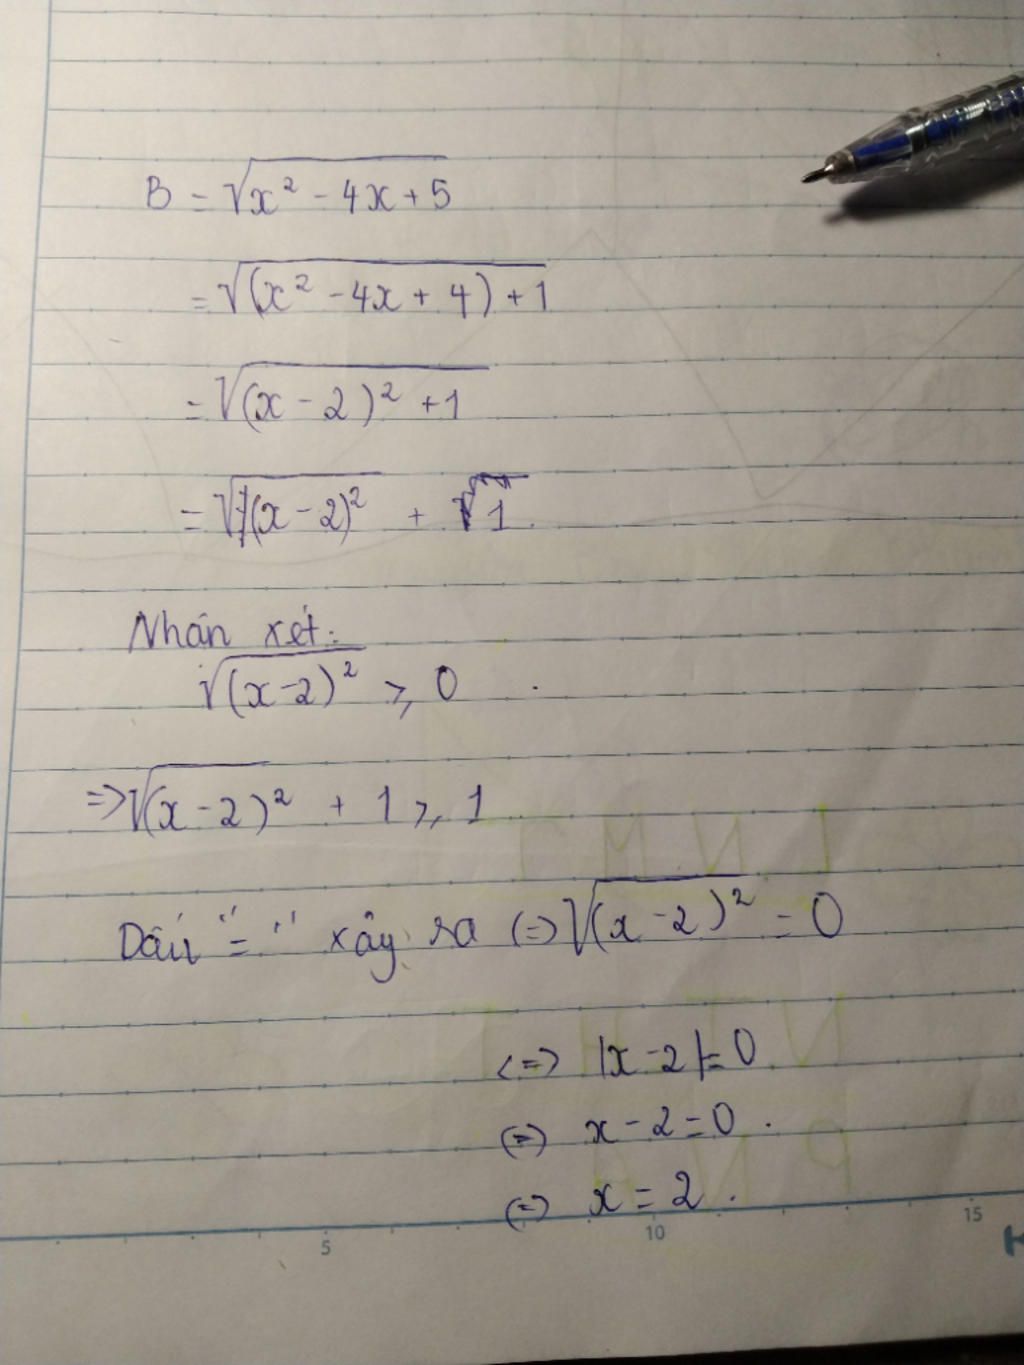 B = √x² - 4x + 5
= √(x² - 4x + 4) + 1
= √(x - 2)² + 1
= √(x - 2)² + √1
Nhân xét:
√(x-2)² ⩾ 0
=> √(x-2)² + 1 ⩾ 1
Dấu "=" xảy ra <=> √(x-2)² = 0
<=> |x-2| = 0
<=> x - 2 = 0.
<=> x = 2.
5 10 15